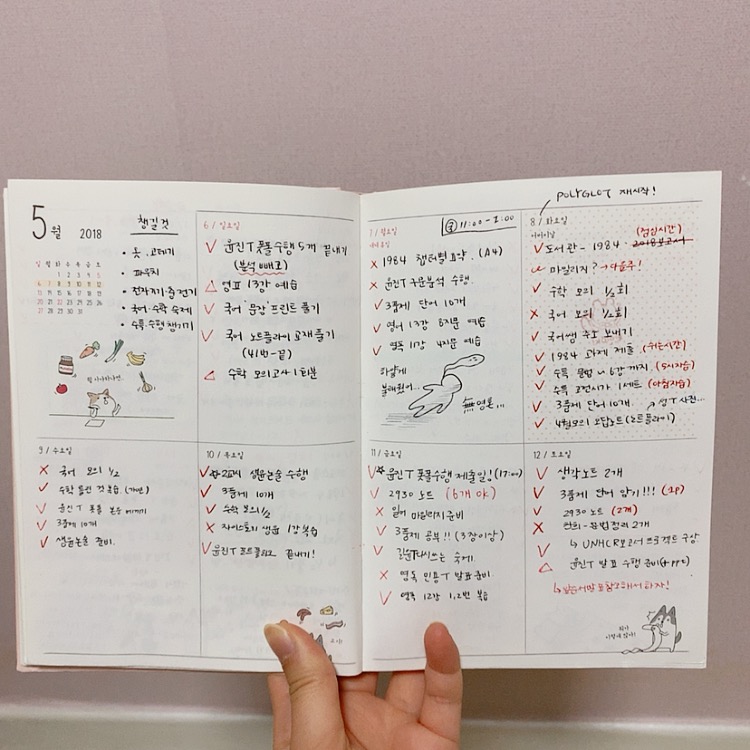 5월 2018
챙길것
일 월 화 수 목 금 토
1 2 3 4 5
6 7 8 9 10 11 12
13 14 15 16 17 18 19
20 21 22 23 24 25 26
27 28 29 30 31
• 옷, 고데기
• 파우치
• 전자기기·충전기
• 국어·수학 숙제
• 수특·수행 챙기기
6 / 일요일
윤진T 풋풀수행 5개 끝내기
(분석 빼고)
영표 13강 예습
국어 '문장' 프린트 풀기
국어 노트플라이 교재 풀기
(41번-끝)
수학 모의고사 1회분
7 / 월요일
11:00-1:00
1984 챕터별 요약. (A4)
윤진T 구문분석 수행.
3품제 단어 10개
영어 13강 8지문 예습
영독 11강 4지문 예습
하얗게
불태웠어...
無영혼...
POLYGLOT 재시작!
8 / 화요일
어버이날
(점심시간)
도서관 - 1984. 2018보고서
마일리지? → 다음주!
수학 모의 1/2회
국어 모의 1/2회
국어쌤 수도 보내기
1984 과제 제출. (쉬는시간)
수특 문법 ~6강까지. (5시자습)
수특 고전시가 1세트 (아침자습)
3품제 단어 10개.
4월모의 오답노트 (노트플라이)
9 / 수요일
국어 모의 1/2
수학 틀린 것 복습. (기벡)
3품제 10개
생윤논술 준비.
10 / 목요일
2교시 생윤논술 수행
3품제 10개
수학 모의 1/2
자이스토리 생윤 1강 복습
윤진T 포트폴리오 끝내기!
11 / 금요일
윤진T 풋풀수행 제출일! (17:00)
2930 노트 (6개 OK)
일어 마일리지 준비
3품제 공부!! (3장이상)
영독 인용T 발표 준비.
영독 12강 1,2번 복습
12 / 토요일
생각노트 2개
3품제 단어 암기!!! (1p)
2930 노트 (2개)
↳ UNHCR 보고서 프로젝트 구상
윤진T 발표 수행 준비 (+ppt)